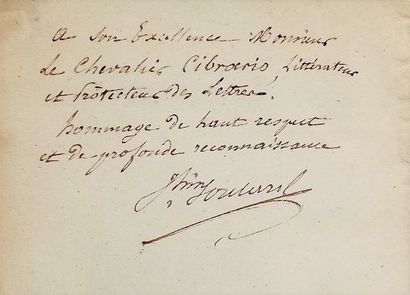 A Son Excellence Monsieur
Le Chevalier Cibrario, Littérateur
et Protecteur des Lettres.
hommage de haut respect
et de profonde reconnaissance
Jhin Soulary